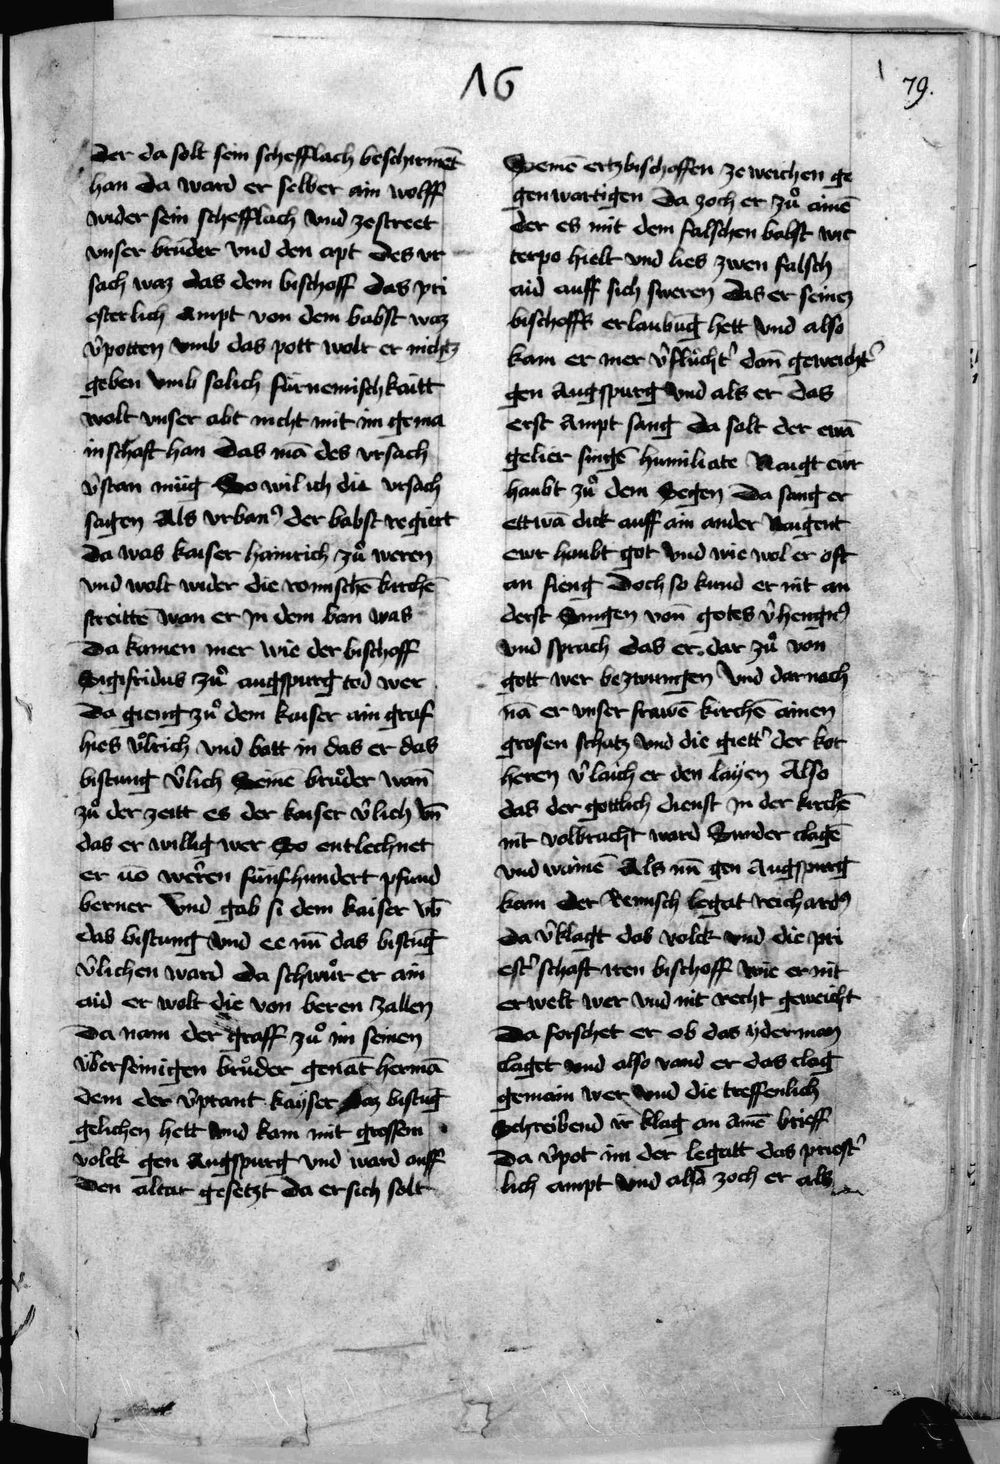 16
79.
Der da solt sein schefflach beschirmēt
han Da ward er selber ain wolff
wider sein schefflach vnd zestreet
vnser brüder vnd den apt Des vr
sach waz das dem bischoff Das pri
esterlich Ampt von dem babst waz
v̂potten vmb das pott wolt er nichtz
geben vmb solich fürnemischkaitt
wolt vnser abt nicht mit im gema
inschaft han Das mā des vrsach
v̂stan müg So wil ich die vrsach
sagen Als vrbanꝰ der babst regiert
Da was kaiser hainrich zů weren
vnd wolt wider die romischē kirchē
streittē wan er In dem ban was
Da kamen mer wie der bischoff
Sigifridus zů augspurg tod wer
Da gieng zů dem kaiser ain graf
hies v̊lrich vnd batt in das er das
bistung v̂lich Seine brůder wañ
zů der zeitt es der kaiser v̂lich vn̄
das er willig wer So entlechnet
er vō werren fünfhundert pfund
berner Vnd gab si dem kaiser vb̄
das bistung vnd ee nū das bistūg
v̂lichen ward Da schwůr er ain
aid er wolt die von beren zallen
Da nam der graff zů im seinen
v̈berseinigen brůder genāt hermā
dem der v̂prant kayser Daz bistūg
gelichen hett vnd kam mit grossem
volck gen Augspurg vnd ward auff
den altar gesetzt Da er sich solt
Seinē ertzbischoffen ze weichen ge
genwartigen Da zoch er zů ainē
der es mit dem falschen babst wic
terpo hielt vnd lies zwen falsch
aid auff sich sweren Das er seinez
bischoffs erlaubūg hett vnd also
kam er mer v̂flüchtʾ dañ geweichtʾ
gen Augspurg vnd als er das
erst Ampt sang Da solt der ewā
gelier singē humiliate Naigt ewr
haubt zů dem Segen Da sang er
ettwā dick auff ain ander Naigent
ewr haubt got vnd wie wol er oft
an fieng Doch so kund er nit an
derst Singen von gotes v̂hengnꝰ
vnd sprach das er dar zů von
gott wer bezwungen Vnd darnach
nā er vnser frawē kirchē ainen
grosen schatz vnd die giettʾ der kor
heren v̂laich er den layen Also
das der gottlich dienst In der kirchē
nit volbracht ward Sunder clagē
vnd wainē Als nū gen Augspurg
kam der Remisch legat reichardꝰ
Da v̂klagt das volck vnd die pri
estʾschaft iren bischoff wie er nit
erwelt wer vnd nit recht geweicht
Da forschet er ob das yderman
claget vnd also vand er das clag
gemain wer vnd die treffenlich
Schreibend ir klag an ainē brieff
Da v̂pot im der legatt das priestʾ
lich ampt vnd also zoch er als